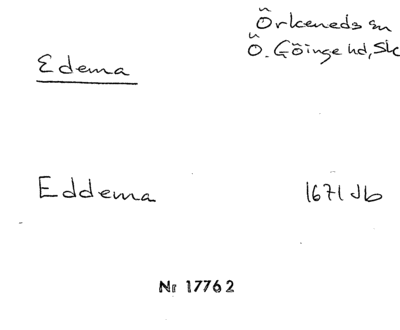 Örkeneds sn
Edema
Ö. Göinge hd, Sk
Eddema 1671 Jb
Nr 17762